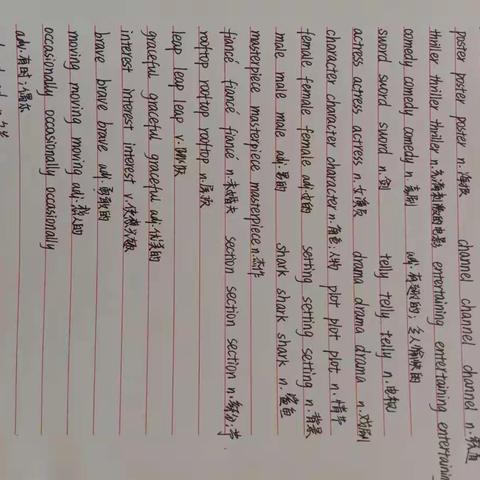 poster poster poster n.海报 channel channel channel n.频道
thriller thriller thriller n.充满刺激的电影 entertaining entertaining entertaining
comedy comedy comedy n.喜剧 adj.有趣的；令人愉快的
sword sword sword n.剑 telly telly telly n.电视
actress actress actress n.女演员 drama drama drama n.戏剧
character character character n.角色；人物 plot plot plot n.情节
female female female adj.女的 setting setting setting n.背景
male male male adj.男的 shark shark shark n.鲨鱼
masterpiece masterpiece masterpiece n.杰作
fiancé fiancé fiancé n.未婚夫 section section section n.部分；节
rooftop rooftop rooftop n.屋顶
leap leap leap v.跳跃
graceful graceful graceful adj.优美的
interest interest interest v.使感兴趣
brave brave brave adj.勇敢的
moving moving moving adj.感人的
occasionally occasionally occasionally
adv.有时；偶尔